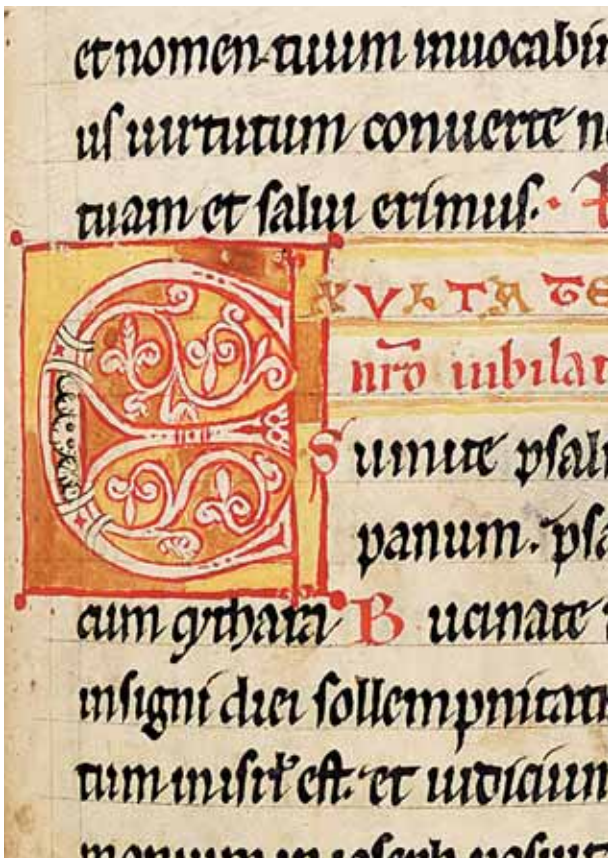 et nomen tuum inuocabim
us uirtutum conuerte n
tuam et salui erimus.
EXVLTATE
nr̄o iubilat
Sumite psal
panum. psa
cum cythara Bucinate
insigni diei sollempnitati
tum in isrl̄ est. et iudicium
monium in ioseph posuit